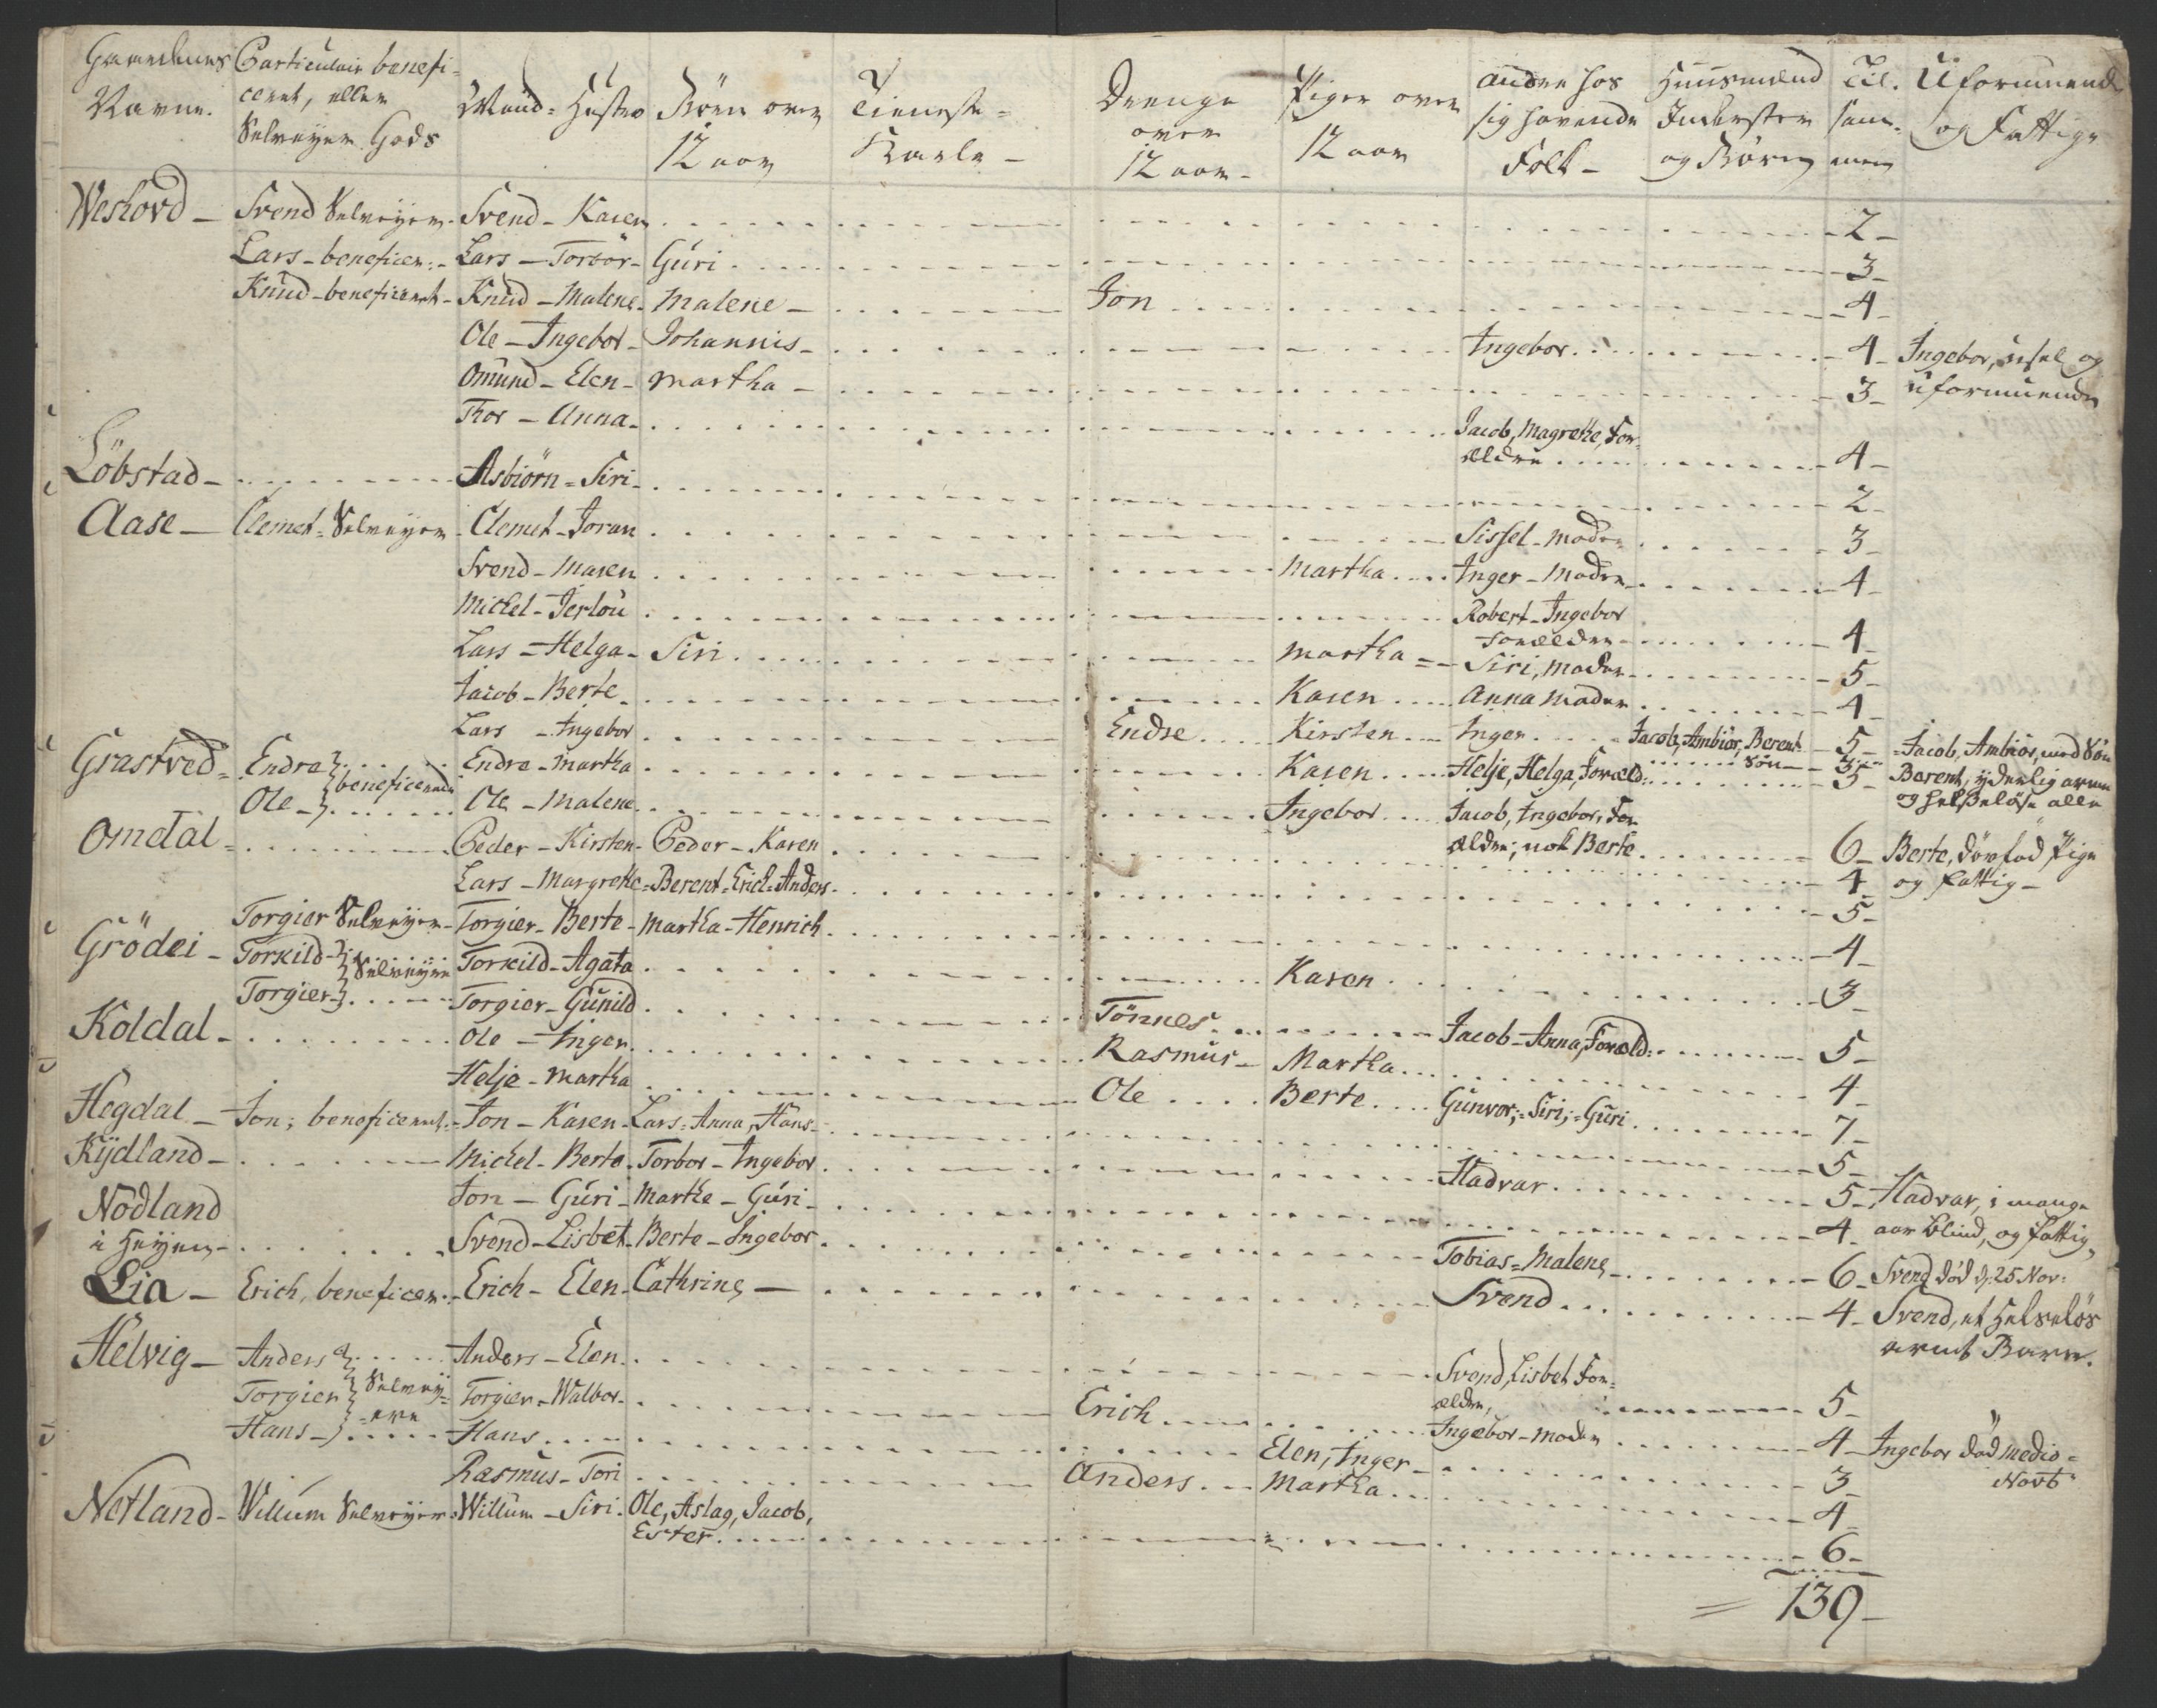 Gaardenes Navne.
Particulair beneficeret, eller Selveyer Gods
Mand - Hustro
Börn over 12 aar
Tieneste-Karle -
Drenge over 12 aar -
Piger over 12 aar
andre hos sig havende Folk -
Huusmænd Inderster og Börn
Til-sammen
Uformuende og Fattige
Weshovd - Svend Selveyer - Svend - Karen - 2 -
Lars - beneficer: - Lars - Torbör - Guri - 3 -
Knud - beneficeret - Knud - Malene - Malene - Jon - 4 -
Ole - Ingebor - Johannis - Ingebor - 4 - Ingebor, usel og
Omund - Elen - Martha - 3 - uformuende
Thor - Anna - Jacob, Magrethe, For-
ældre - 4 -
Löbstad - Asbiörn = Siri - 2 -
Aase - Clemet = Selveyer - Clemet - Joran - Sissel - moder - 3 -
Svend - Maren - Martha - Inger - Moder - 4 -
Michel - Jerlou - Robert - Ingebor
Forældre - 4 -
Lars - Helga - Siri - Martha = - Siri, Moder - 5 -
Jacob - Berte - Karen - Anna Moder - 4 -
Lars - Ingebor - Endre - Kirsten - Inger - Jacob, Ambiör, Berent Sön - 5 - Jacob, Ambiör, med Sön
Grastved = Endre beneficerede - Endre - Martha - Karen - Helje, Helga, Foræld: - 5 - Berent, yderlig arme
og helseløse alle
Ole - Ole - Malene - Ingebor - Jacob, Ingebor, For
ældre; nok Berte - 6 - Berte, dövfød Pige
Omdal = Peder - Kirsten - Peder - Karen - 4 - og fattig -
Lars - Margrethe = Berent = Erich = Anders - 5 -
Torgier Selveyer - Torgier - Berte - Martha - Henrich - 4 -
Grödei - Torkild Selveyere - Torkild - Agata - Karen - 3 -
Torgier - Torgier - Gunild - Tönnes - Jacob - Anna, Foræld: - 5 -
Koldal - Ole - Inger - Rasmus - Martha - 4 -
Helje - Martha - Ole - Berte - Gunvor; = Siri; = Guri - 7 -
Hegdal - Jon; beneficeret - Jon - Karen - Lars = Anna, Hans - 5 -
Kÿdland - Michel - Berte - Torbor - Ingebor - Hadvar - 5 - Hadvar, i mange
Nodland
i Heyen - Jon - Guri - Marthe - Guri - 4 - aar blind, og fattig,
Svend - Lisbet - Berte - Ingebor - Tobias = Malene - 6 - Svend död d: 25 Nov:
Lia - Erich, beneficer: - Erich - Elen - Cathrine - Svend - 4 - Svend, et helselös
armt Barn.
Helvig - Anders - Anders - Elen - Svend, Lisbet For-
ældre, - 5 -
Torgier Selvey-ere - Torgier - Walbor - Erich - Ingebor - Moder - 4 - Ingebor död medio =
Novb
Hans - Hans - Elen, Inger - 3 -
Rasmus - Tori - Anders - Martha - 4 -
Netland - Willum Selveyer - Willum - Siri - Ole, Aslag, Jacob,
Ester - 6 -
= 139 -